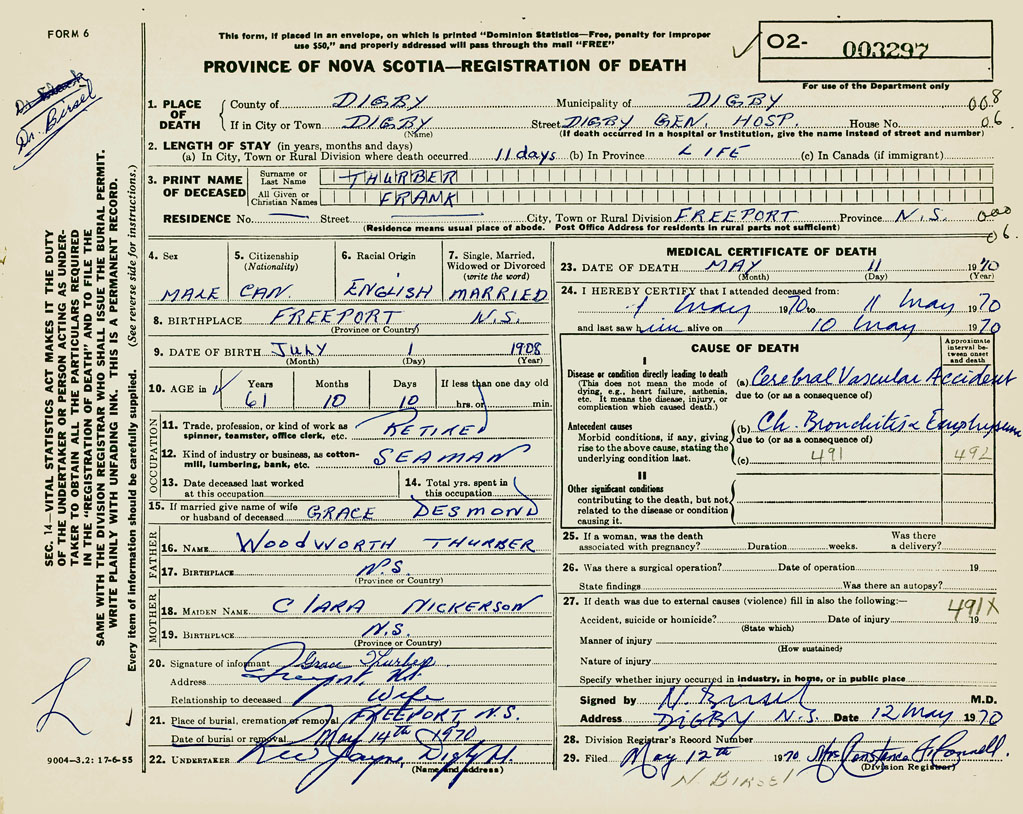 FORM 6
This form, if placed in an envelope, on which is printed "Dominion Statistics—Free, penalty for improper
use $50," and properly addressed will pass through the mail "FREE"
PROVINCE OF NOVA SCOTIA—REGISTRATION OF DEATH
O2- 003297
For use of the Department only
Dr. Birsel
SEC. 14—VITAL STATISTICS ACT MAKES IT THE DUTY
OF THE UNDERTAKER OR PERSON ACTING AS UNDER-
TAKER TO OBTAIN ALL THE PARTICULARS REQUIRED
IN THE "REGISTRATION OF DEATH" AND TO FILE THE
SAME WITH THE DIVISION REGISTRAR WHO SHALL ISSUE THE BURIAL PERMIT.
WRITE PLAINLY WITH UNFADING INK. THIS IS A PERMANENT RECORD.
Every item of information should be carefully supplied. (See reverse side for instructions.)
1. PLACE OF DEATH
County of DIGBY Municipality of DIGBY 008
If in City or Town DIGBY Street DIGBY GEN. HOSP. House No. 06
(Name) (If death occurred in a hospital or institution, give the name instead of street and number)
2. LENGTH OF STAY (in years, months and days)
(a) In City, Town or Rural Division where death occurred 11 days (b) In Province LIFE (c) In Canada (if immigrant)
3. PRINT NAME OF DECEASED
Surname or Last Name THURBER
All Given or Christian Names FRANK
RESIDENCE No. — Street — City, Town or Rural Division FREEPORT Province N.S. 000
(Residence means usual place of abode. Post Office Address for residents in rural parts not sufficient) 06.
4. Sex MALE
5. Citizenship (Nationality) CAN.
6. Racial Origin ENGLISH
7. Single, Married, Widowed or Divorced (write the word) MARRIED
8. BIRTHPLACE FREEPORT N.S.
(Province or Country)
9. DATE OF BIRTH JULY 1 1908
(Month) (Day) (Year)
10. AGE in Years Months Days If less than one day old
61 10 10 hrs. or min.
OCCUPATION
11. Trade, profession, or kind of work as spinner, teamster, office clerk, etc. RETIRED
12. Kind of industry or business, as cotton-mill, lumbering, bank, etc. SEAMAN
13. Date deceased last worked at this occupation
14. Total yrs. spent in this occupation
15. If married give name of wife or husband of deceased GRACE DESMOND
FATHER
16. NAME WOODWORTH THURBER
17. BIRTHPLACE N.S.
(Province or Country)
MOTHER
18. MAIDEN NAME CLARA NICKERSON
19. BIRTHPLACE N.S.
(Province or Country)
20. Signature of informant Grace Thurber
Address Freeport N.S.
Relationship to deceased Wife
21. Place of burial, cremation or removal FREEPORT N.S.
Date of burial or removal May 14th 1970
22. UNDERTAKER
(Name and address)
9004—3.2: 17-6-55
MEDICAL CERTIFICATE OF DEATH
23. DATE OF DEATH MAY 11 1970
(Month) (Day) (Year)
24. I HEREBY CERTIFY that I attended deceased from:
1 May 1970 to 11 May 1970
and last saw him alive on 10 May 1970
CAUSE OF DEATH
Approximate interval between onset and death
I
Disease or condition directly leading to death
(This does not mean the mode of dying, e.g., heart failure, asthenia, etc. It means the disease, injury, or complication which caused death.)
(a) Cerebral Vascular Accident
due to (or as a consequence of)
Antecedent causes
Morbid conditions, if any, giving rise to the above cause, stating the underlying condition last.
(b) Ch. Bronchitis & Emphysema
due to (or as a consequence of)
(c) 491 492
II
Other significant conditions
contributing to the death, but not related to the disease or condition causing it.
25. If a woman, was the death associated with pregnancy? Duration weeks. Was there a delivery?
26. Was there a surgical operation? Date of operation 19
State findings Was there an autopsy?
27. If death was due to external causes (violence) fill in also the following:— 491X
Accident, suicide or homicide? Date of injury 19
(State which)
Manner of injury
(How sustained)
Nature of injury
Specify whether injury occurred in industry, in home, or in public place
Signed by N. Birsel M.D.
Address DIGBY N.S. Date 12 May 1970
28. Division Registrar's Record Number
29. Filed May 12th 1970 Mrs. Constance
(Division Registrar)
N BIRSEL